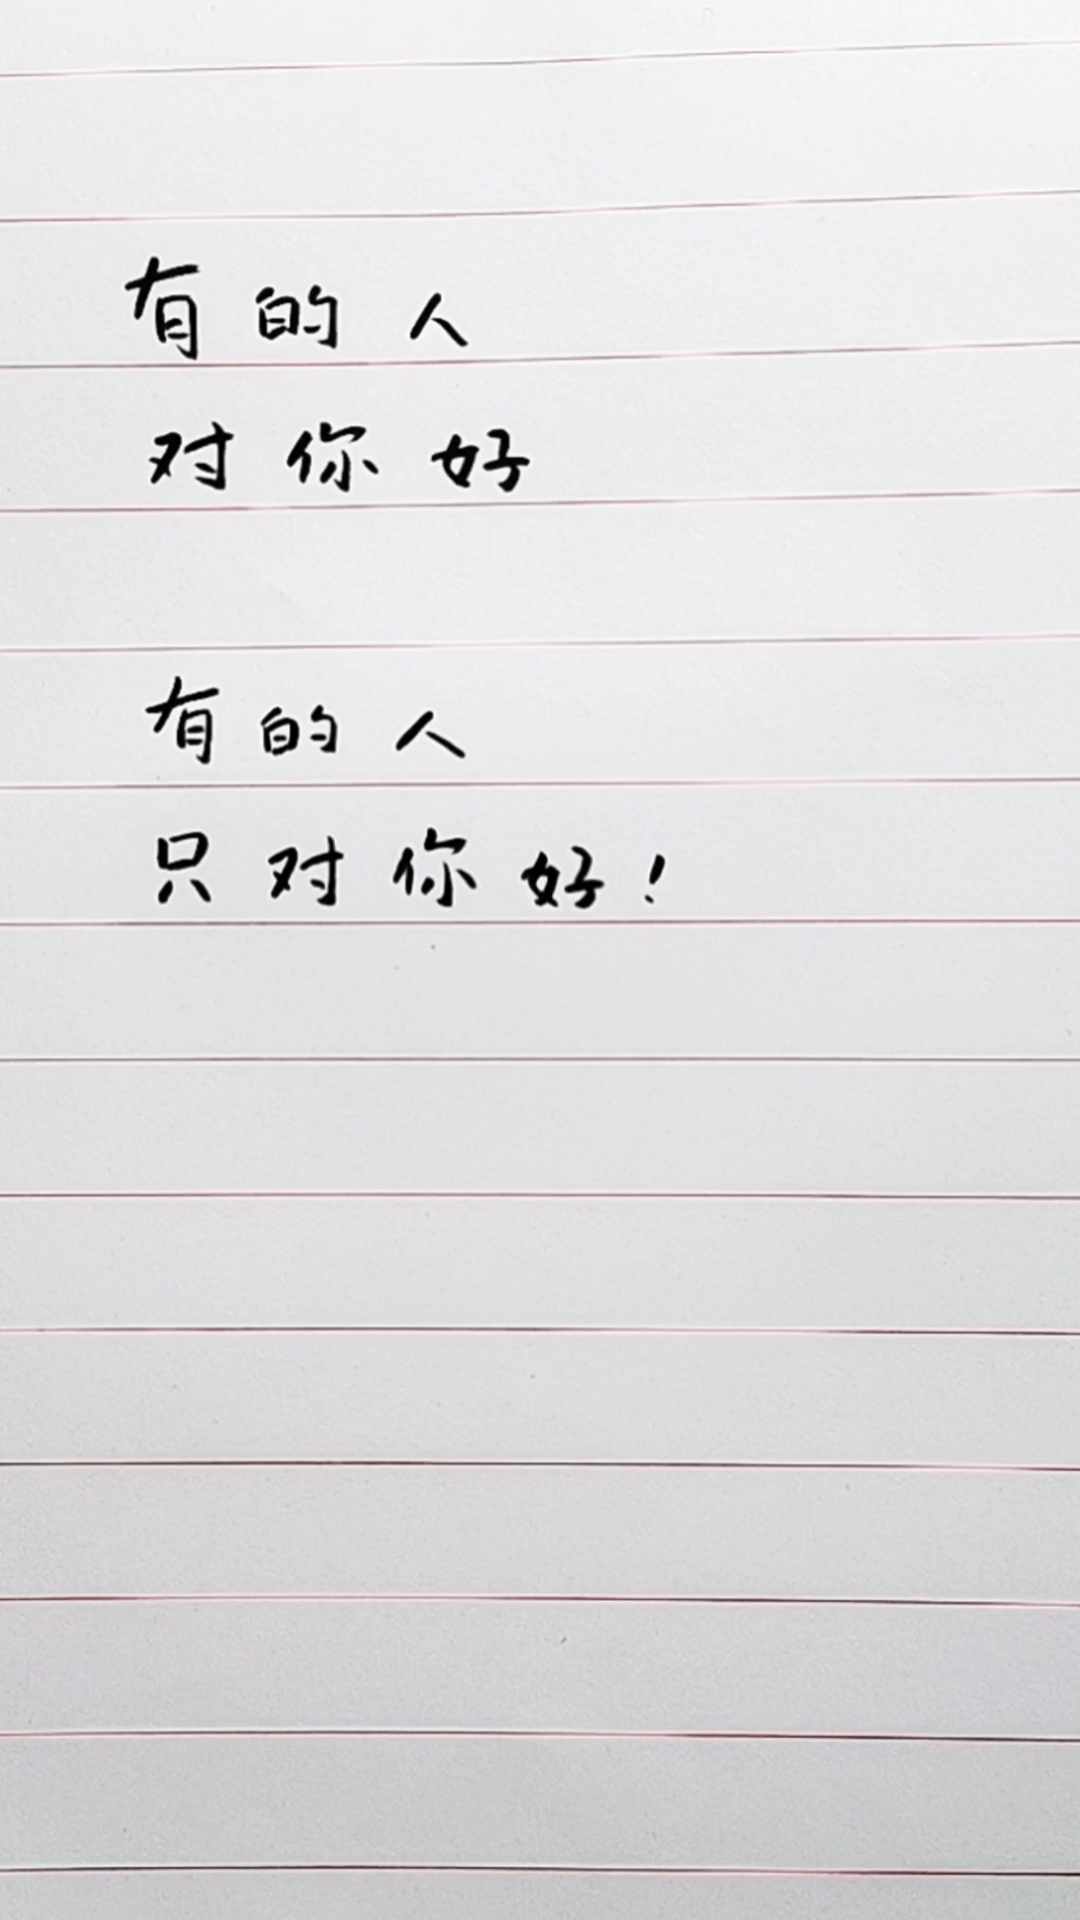 有的人
对你好
有的人
只对你好！